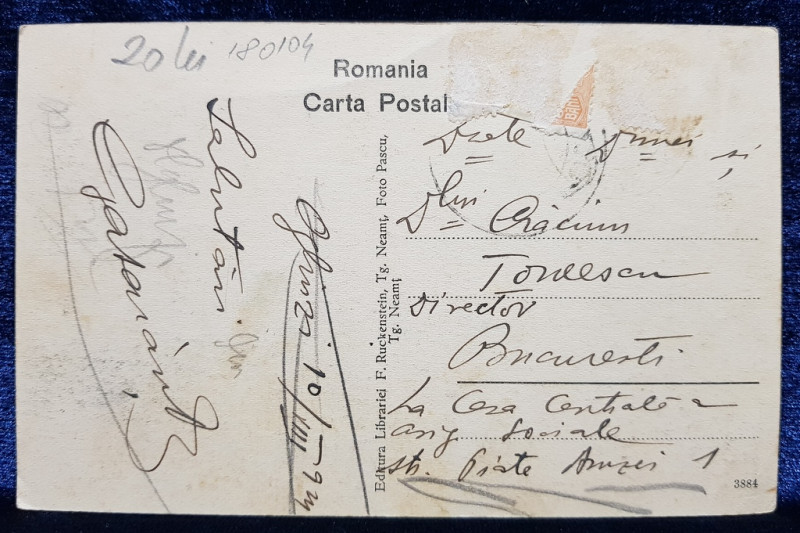 20 lei 180104
Romania
Carta Postal
Salutări
Oglinzi 10/VIII
Editura Librariei F. Ruckenstein, Tg. Neamț, Foto Pascu,
Tg. Neamț
D-nei și
D-lui Crăciun
Ionescu
Director
Bucuresti
La Casa Centrală a
asig Sociale
str. Piața Amzei 1
3884